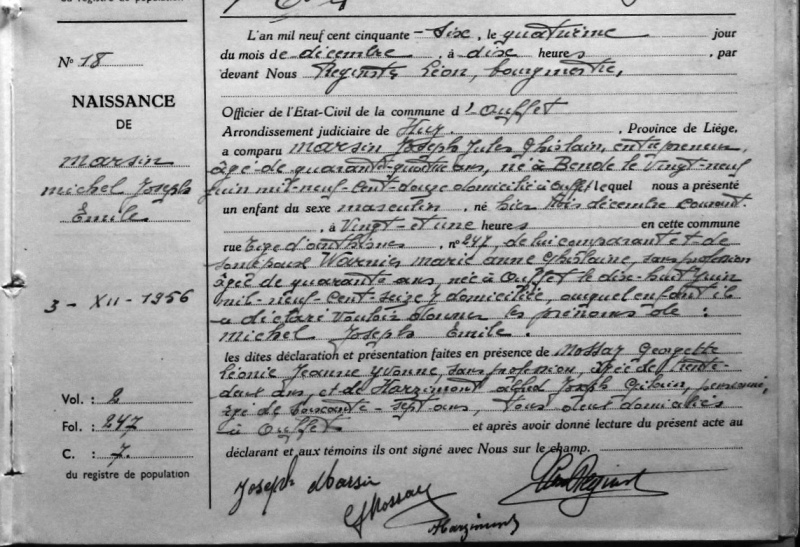 du registre de population
L'an mil neuf cent cinquante-six, le quatrième jour
du mois de décembre, à dix heures, par
devant Nous Reginster Léon, bourgmestre,
Officier de l'Etat-Civil de la commune d'Ouffet
Arrondissement judiciaire de Huy, Province de Liége,
a comparu Marsin Joseph Jules Ghislain, entrepreneur,
âgé de quarante-quatre ans, né à Bende le vingt-neuf
juin mil-neuf-cent-douze domicilié à Ouffet lequel nous a présenté
un enfant du sexe masculin, né hier trois décembre courant.
, à vingt-et-une heures en cette commune
rue Tige d'anthisnes, n° 247, de lui comparant et de
son épouse Warnier marie anne Ghislaine, sans profession
âgée de quarante ans, née à Ouffet le dix-huit juin
mil-neuf-cent-seize y domiciliée, auquel enfant il
a déclaré vouloir donner les prénoms de :
michel Joseph Emile.
les dites déclaration et présentation faites en présence de Mossay Georgette
Léonie Jeanne Yvonne, sans profession, âgée de trente-
deux ans, et de Harzimont alfred Joseph Ghislain, pensionné,
âgé de soixante-sept ans, tous deux domiciliés
à Ouffet et après avoir donné lecture du présent acte au
déclarant et aux témoins ils ont signé avec Nous sur le champ.
Joseph Marsin
GMossay
Harzimont
Léon Reginster
N° 18
NAISSANCE
DE
Marsin
michel Joseph
Emile
3 - XII - 1956
Vol. : 2
Fol. : 247
C. : 7.
du registre de population